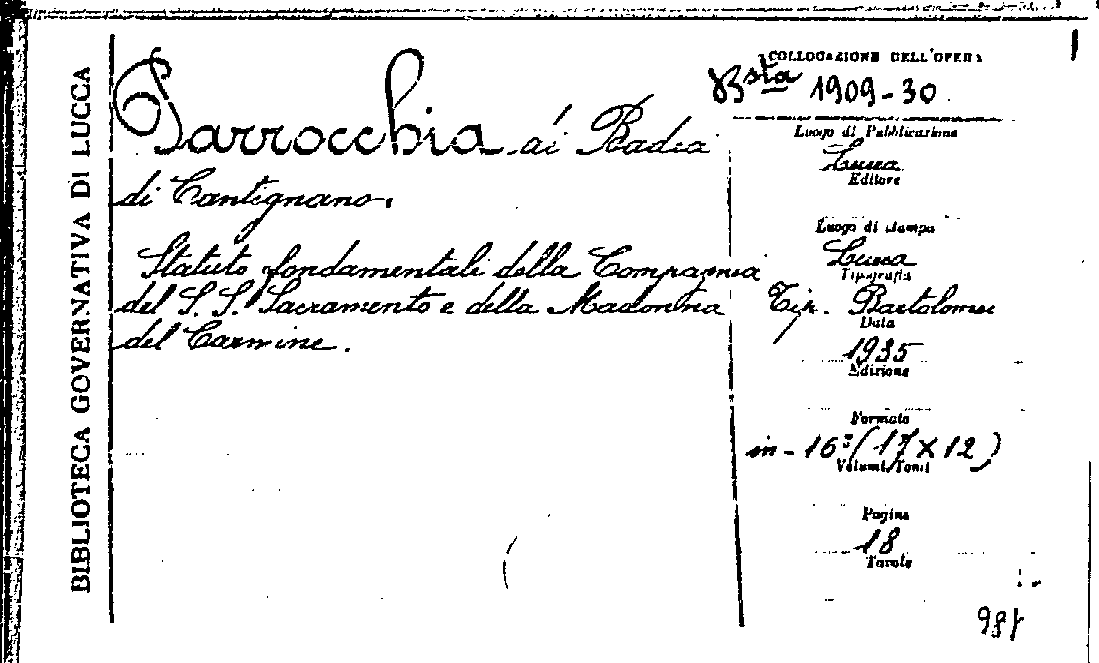 BIBLIOTECA GOVERNATIVA DI LUCCA
Parrocchia di Badia
di Cantignano.
Statuto fondamentali della Compagnia
del S. S. Sacramento e della Madonna
del Carmine.
COLLOCAZIONE DELL'OPERA
Bsta 1909-30
Luogo di Pubblicazione
Lucca
Editore
Luogo di stampa
Lucca
Tipografia
Tip. Bartolomei
Data
1935
Edizione
Formato
in-16º (17 X 12)
Volumi/Tomi
Pagine
18
Tavole